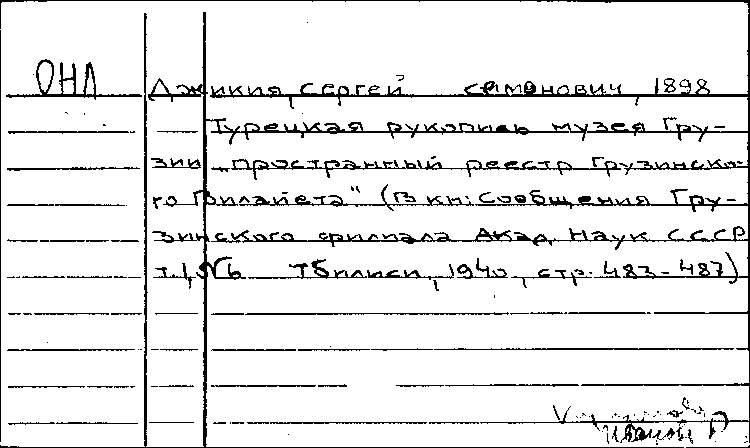 ОНЛ
Джикия, Сергей Семенович, 1898
Турецкая рукопись музея Гру-
зии „пространный реестр Грузинско-
го Вилайета" (В кн: Сообщения Гру-
зинского филиала Акад. Наук СССР
т. 1, №6 Тбилиси, 1940, стр. 483-487)